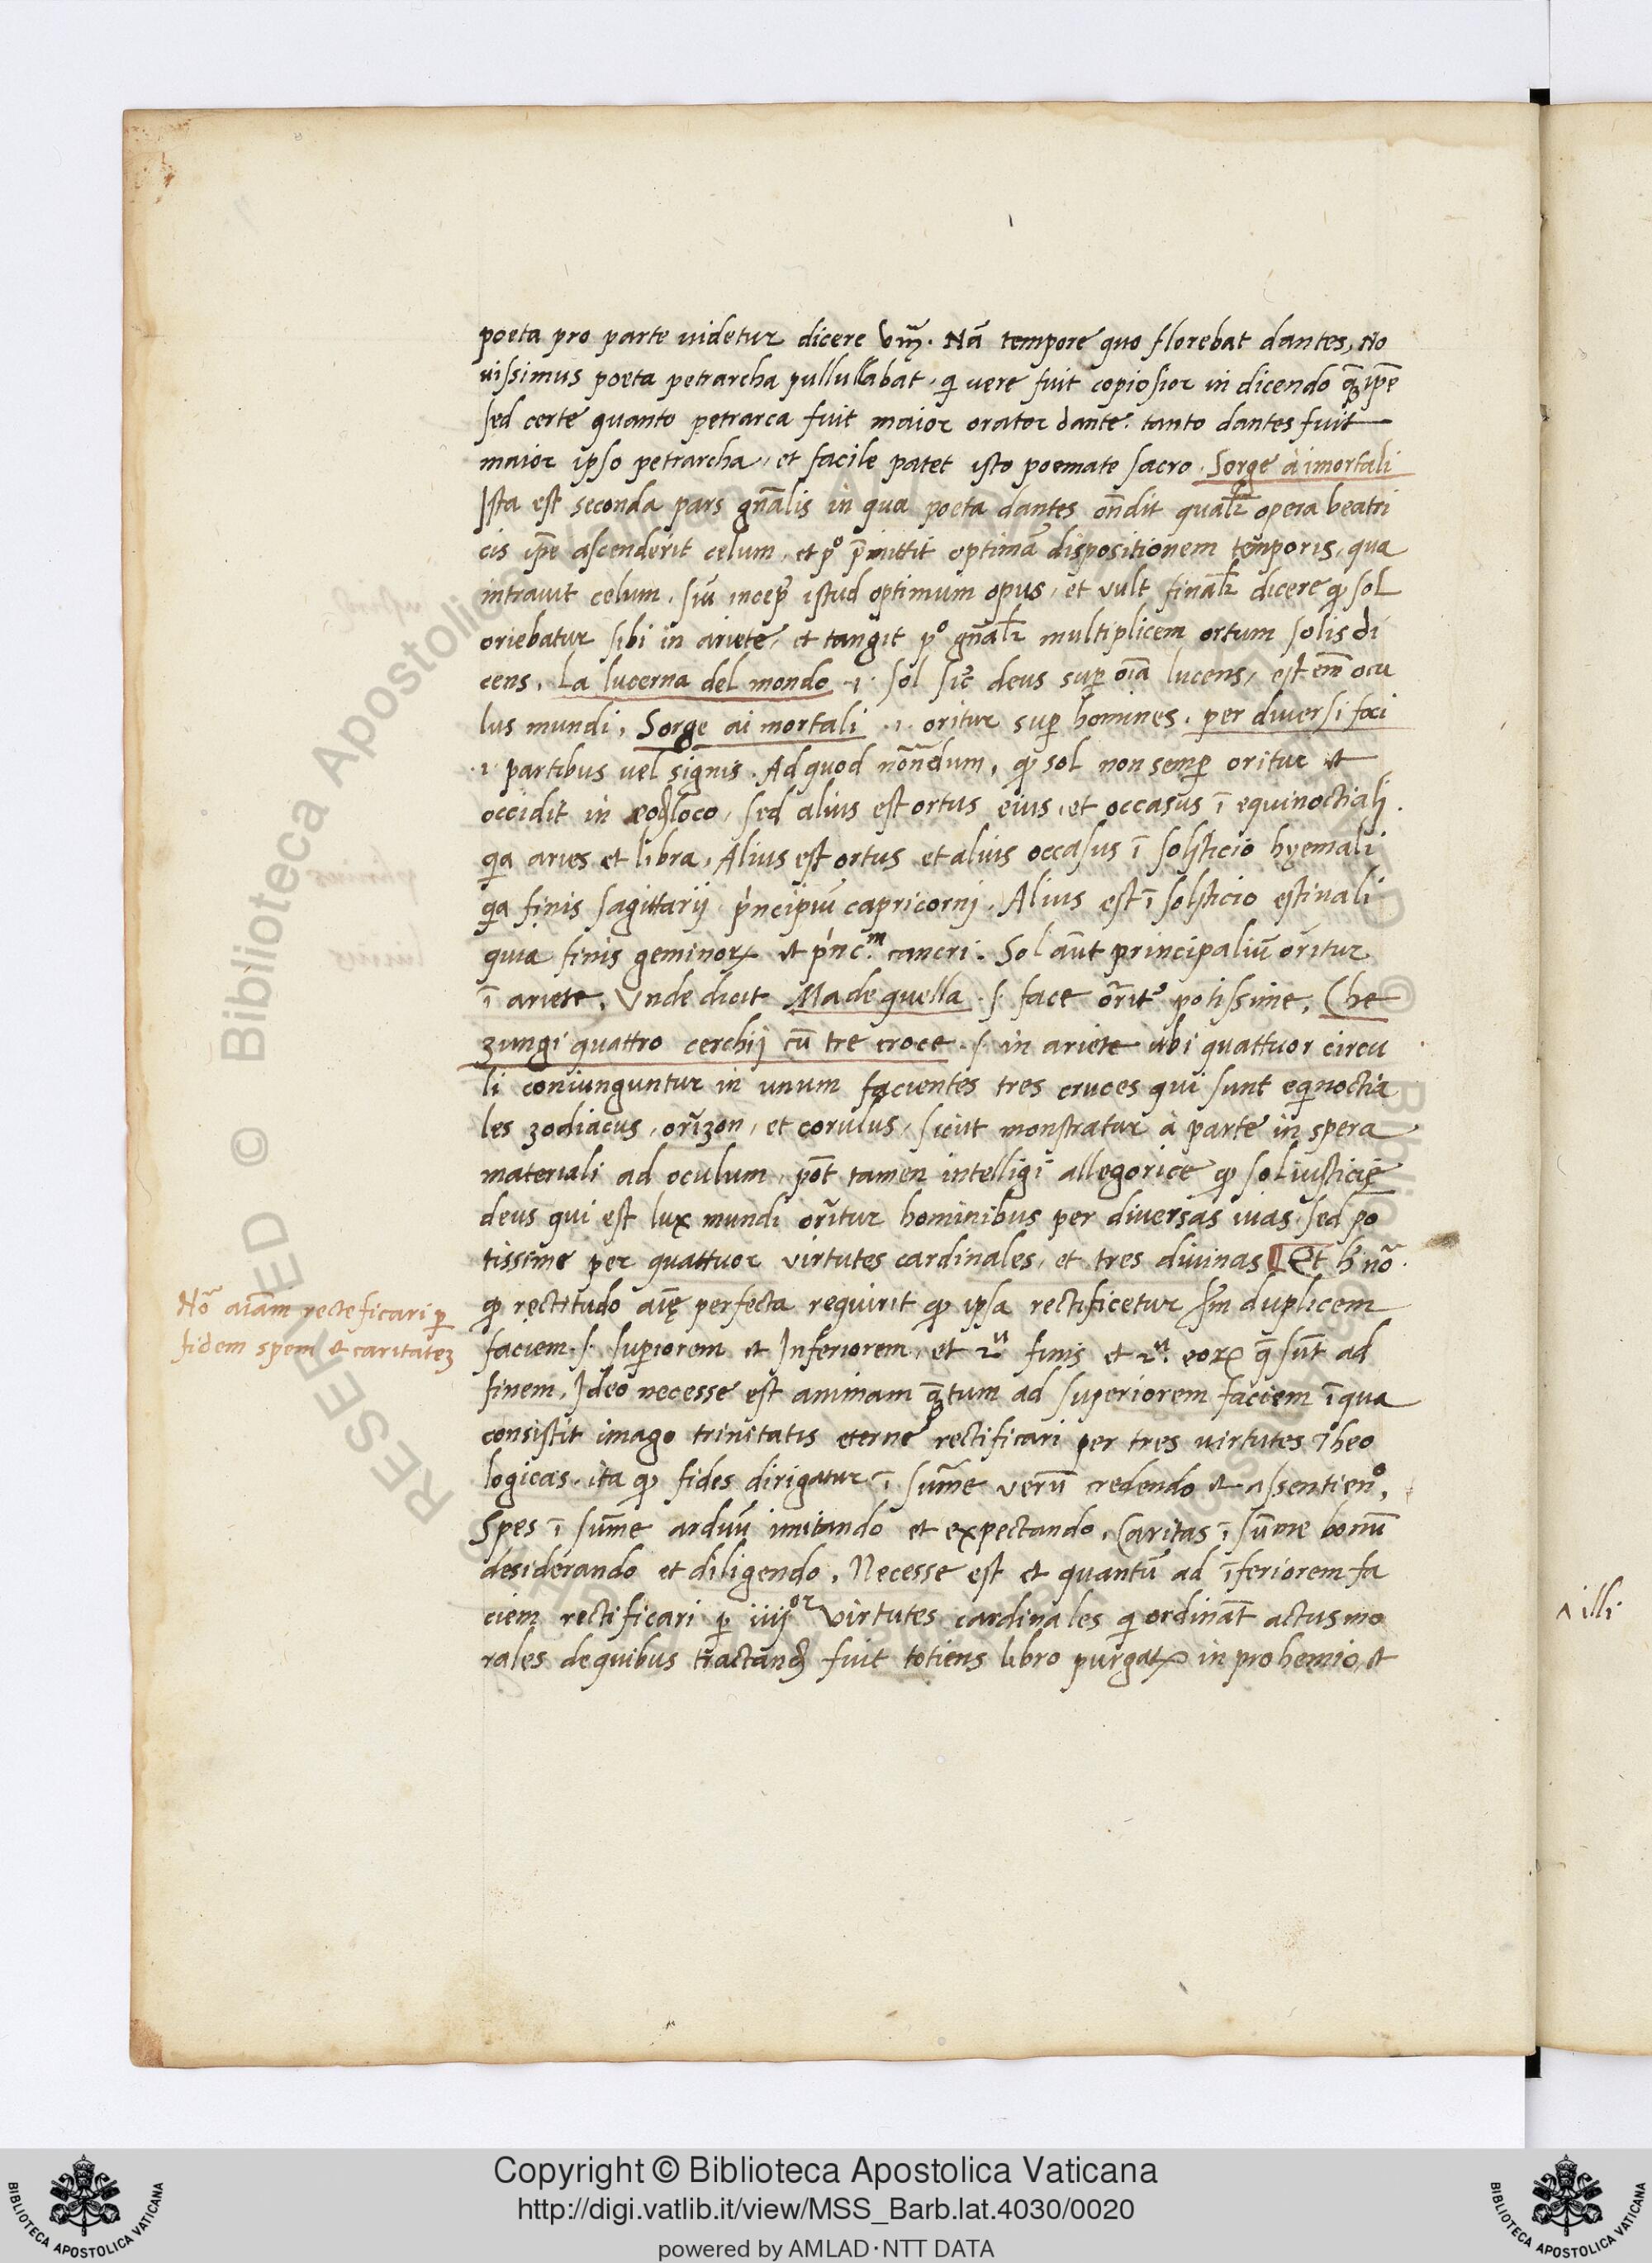 poeta pro parte uidetur dicere Vm̃. Nã tempore quo florebat dantes, No
uissimus poeta petrarcha pullullabat, qi vere fuit copiosior in dicendo ꝗ̃ ip̃e
sed certe quanto petrarca fuit maior orator dante. tanto dantes fuit
maior ipso petrarcha, et facile patet isto poemate sacro. Sorge à imortali
Ista est seconda pars gñalis in qua poeta dantes oñdit qualr̃ opera beatri
cis ip̃e ascenderit celum, et p° p̃mittit optimã dispositionem temporis, qua
intrauit celum, siũ incep̃ istud optimum opus, et vult finalr̃ dicere ꝙ sol
oriebatur sibi in ariete, et tangit p° gñalr̃ multiplicem ortum solis di
cens. La lucerna del mondo .i. sol sic̃ deus sup̱ oĩa lucens, est em̃ ocu
lus mundi, Sorge ai mortali .i. oritur sup̱ homines. per diuersi foci
.i. partibus uel signis. Ad quod nõndum, ꝙ sol non semp̱ oritur et
occidit in eod̃ loco, sed alius est ortus eius, et occasus ĩ equinoctialj.
qia aries et libra. Alius est ortus et alius occasus ĩ solsticio hyemali
qia finis sagittarij principiũ capricornj. Alius est ĩ solsticio estiuali
quia finis geminoꝝ et princ.m cancri. Sol aũt principaliũ oritur
ĩ ariete. Vnde dicit Ma de quella .s. face orit᷒ potissime. Che
zungi quattro cerchij cũ tre croce .s. in ariete ubi quattuor circu
li coniunguntur in unum facientes tres cruces qui sunt eqinoctia
les zodiacus, orizon, et corulus, sicut monstratur à parte in spera
materiali ad oculum, põt tamen intelligi allegorice ꝙ sol iusticię
deus qui est lux mundi oritur hominibus per diuersas uias. sed po
tissime per quattuor virtutes cardinales, et tres diuinas ¶ Et h̃ nõ.
ꝙ rectitudo aĩę perfecta requirit ꝙ ipsa rectificetur s̃m duplicem
faciem .s. superiorem et Inferiorem, et finis et eoꝝ q̃ sũt ad
finem. Ideo necesse est animam ꝗ̃tum ad superiorem faciem ĩ qua
consistit imago trinitatis eterne rectificari per tres uirtutes Theo
logicas. ita ꝙ fides dirigatur ĩ sum̃e verũ credendo et assentien°.
Spes ĩ sum̃e arduũ imitando et expectando. Caritas ĩ sũme bonũ
desiderando et diligendo. Necesse est et quantũ ad ĩferiorem fa
ciem rectificari p̱ iiij or virtutes cardinales qi ordinãt actus mo
rales de quibus tractand̃ fuit totiens libro purgatꝝ in prohemio, et
Nõ aĩam recte ficari p̱
fidem spem et caritatez
^ illi
RESERVED © Biblioteca Apostolica Vaticana
Copyright © Biblioteca Apostolica Vaticana
http://digi.vatlib.it/view/MSS_Barb.lat.4030/0020
powered by AMLAD·NTT DATA
BIBLIOTECA APOSTOLICA VATICANA
BIBLIOTECA APOSTOLICA VATICANA